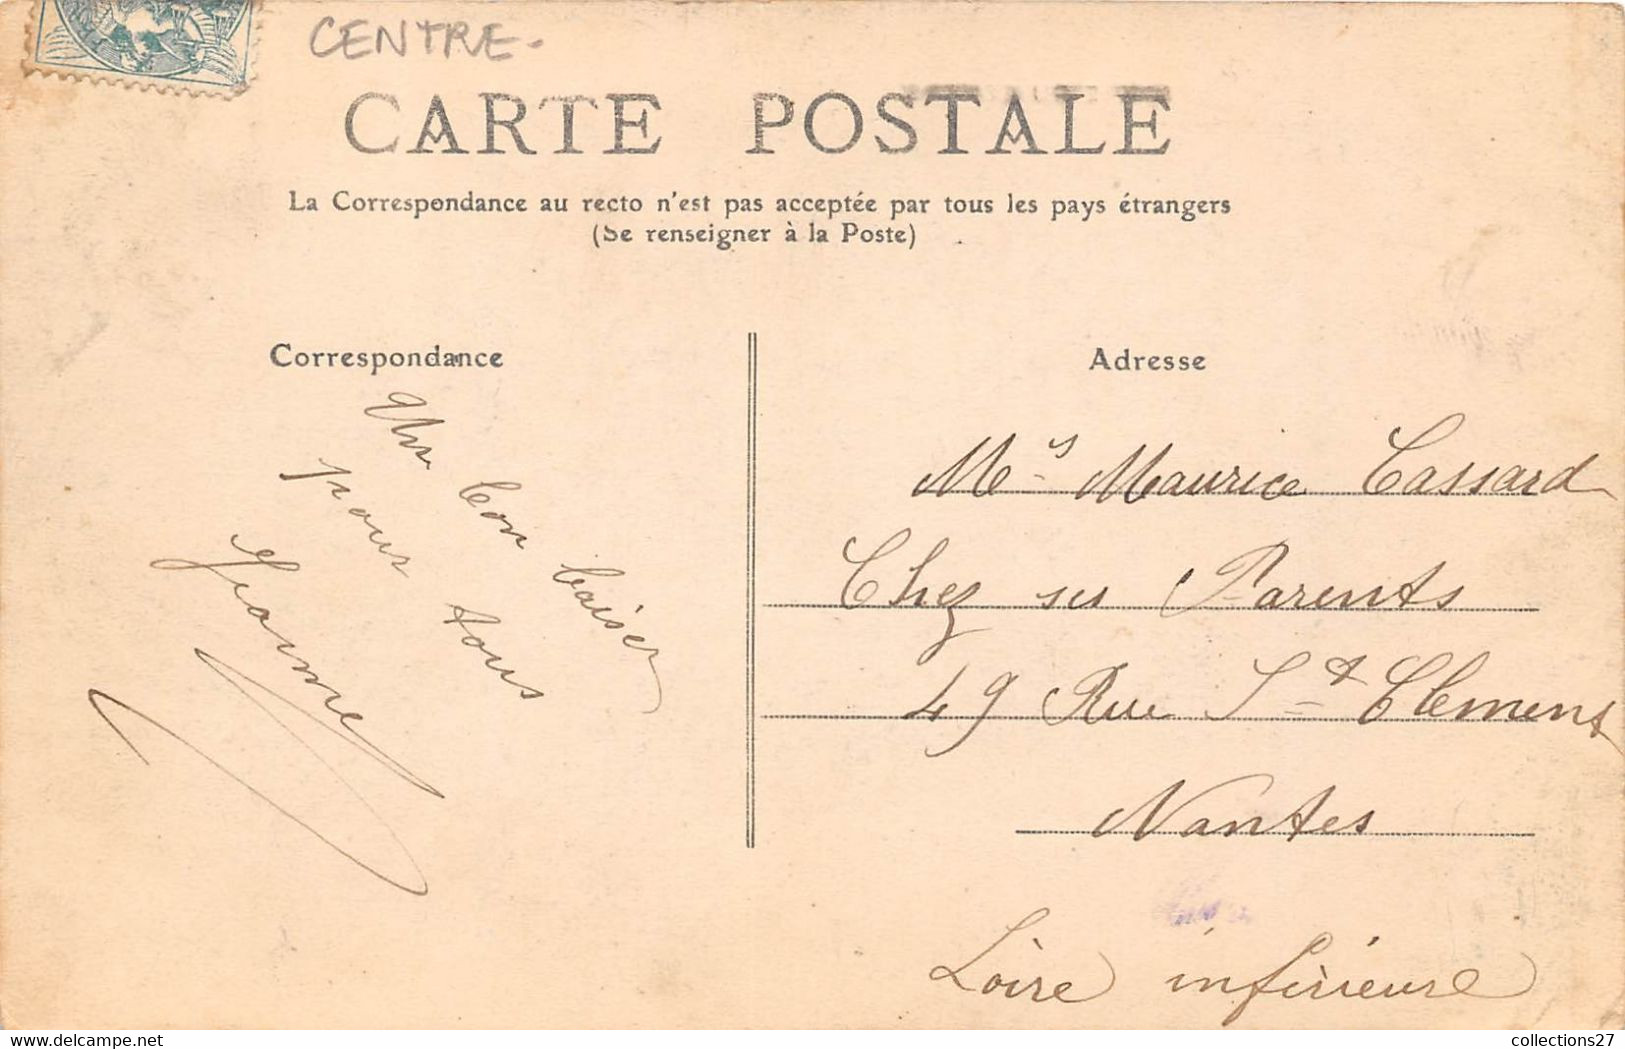 CENTRE-
CARTE POSTALE
La Correspondance au recto n'est pas acceptée par tous les pays étrangers
(Se renseigner à la Poste)
Correspondance
Un bon baiser
pour tous
Jeanne
Adresse
Mrs Maurice Cassard
Chez ses Parents
49 Rue St Clement
Nantes
Loire inférieure
delcampe.net
collections27